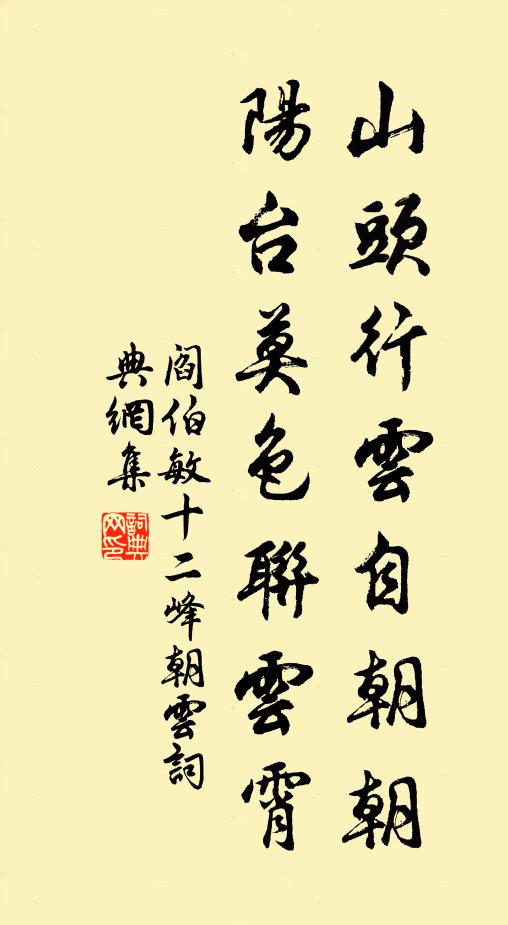 山頭行雲自朝朝
陽台莫色聯雲霄
閻伯敏十二峰朝雲詞
典網集
詞典
网印